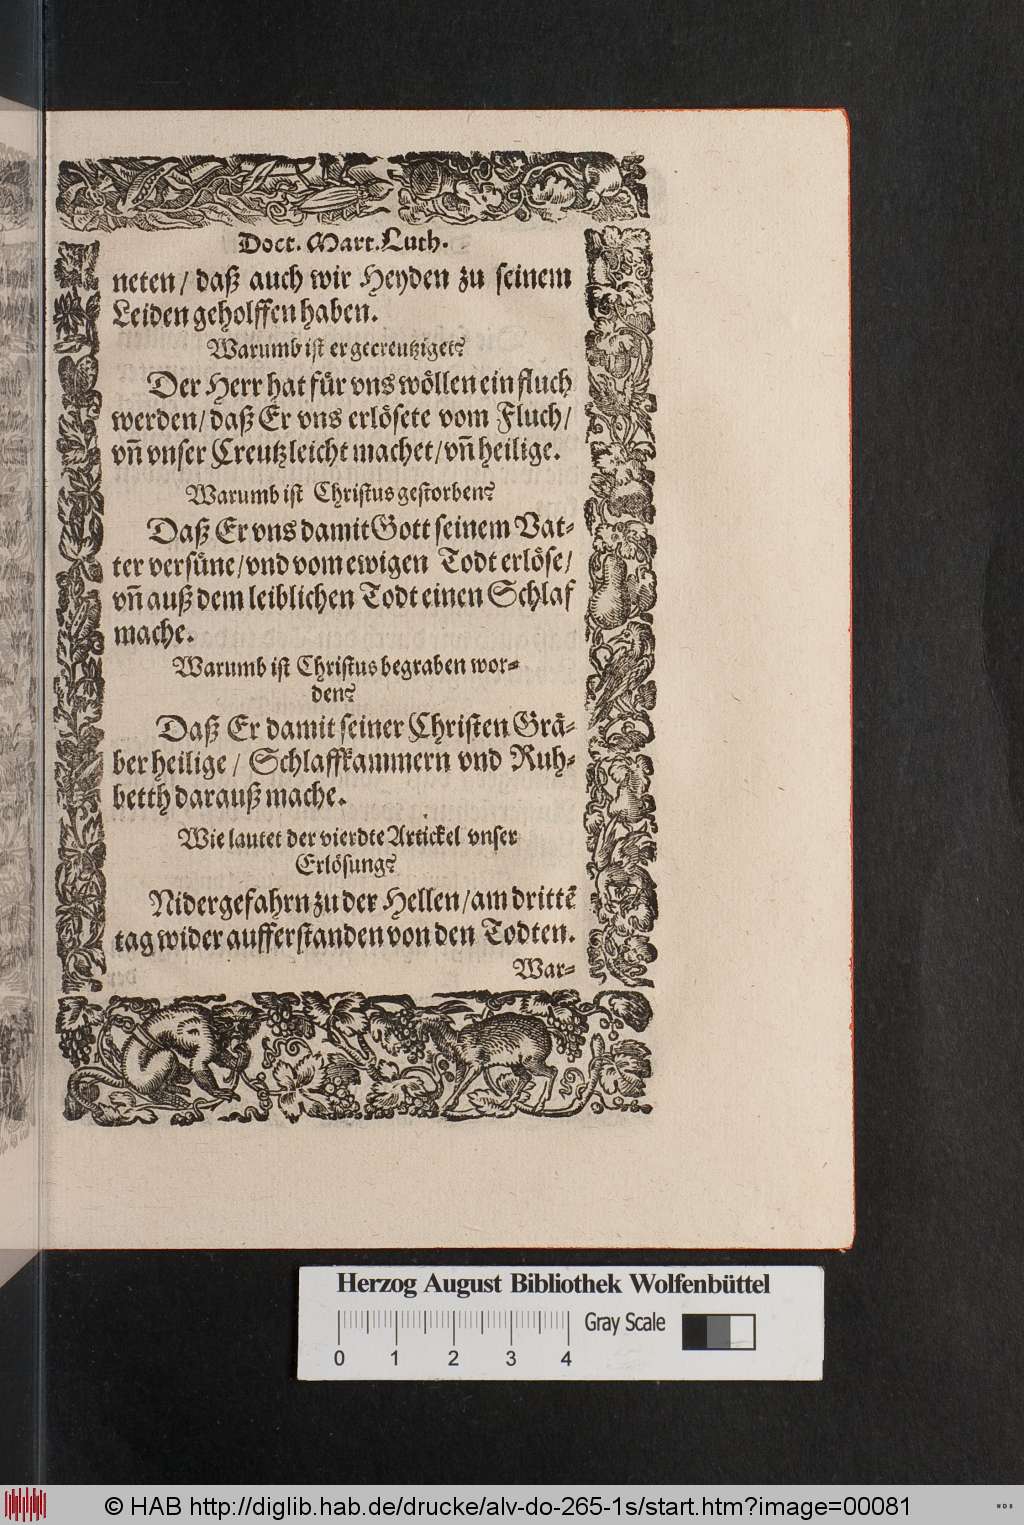 Doct. Mart. Luth.
neten/ daß auch wir Heyden zu seinem
Leiden geholffen haben.
Warumb ist er gecreutziget?
Der Herr hat fuͤr vns woͤllen ein fluch
werden/ daß Er vns erloͤsete vom Fluch/
vn̄ vnser Creutz leicht machet/ vn̄ heilige.
Warumb ist Christus gestorben?
Daß Er vns damit Gott seinem Vat-
ter versuͤne/ vnd vom ewigen Todt erloͤse/
vn̄ auß dem leiblichen Todt einen Schlaf
mache.
Warumb ist Christus begraben wor-
den?
Daß Er damit seiner Christen Graͤ-
ber heilige/ Schlaffkammern vnd Ruh-
betth darauß mache.
Wie lautet der vierdte Artickel vnser
Erloͤsung?
Nidergefahrn zu der Hellen/ am drittẽ
tag wider aufferstanden von den Todten.
War-
Herzog August Bibliothek Wolfenbüttel
Gray Scale
0 1 2 3 4
© HAB http://diglib.hab.de/drucke/alv-do-265-1s/start.htm?image=00081